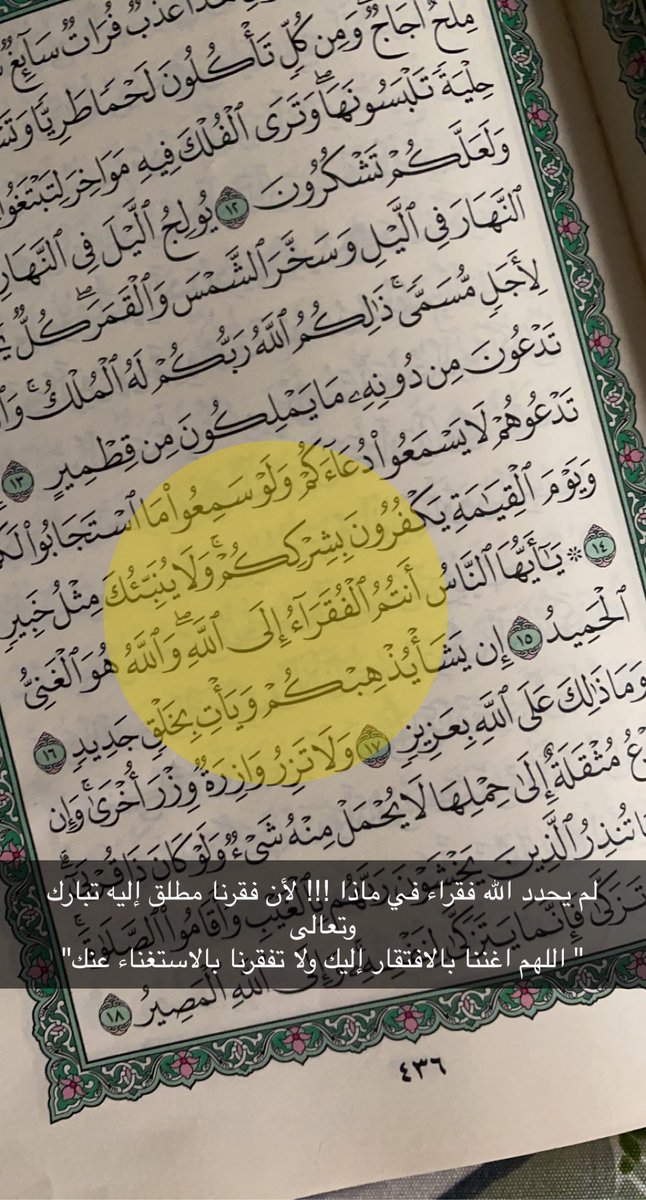 هَٰذَا عَذْبٌ فُرَاتٌ سَآئِغٌ
مِلْحٌ أُجَاجٌ ۖ وَمِن كُلٍّ تَأْكُلُونَ لَحْمًا طَرِيًّا
حِلْيَةً تَلْبَسُونَهَا ۖ وَتَرَى ٱلْفُلْكَ فِيهِ مَوَاخِرَ لِتَبْتَغُوا۟
وَلَعَلَّكُمْ تَشْكُرُونَ ١٢ يُولِجُ ٱلَّيْلَ فِى ٱلنَّهَارِ
ٱلنَّهَارَ فِى ٱلَّيْلِ وَسَخَّرَ ٱلشَّمْسَ وَٱلْقَمَرَ ۖ كُلٌّ
لِأَجَلٍ مُّسَمًّى ۚ ذَٰلِكُمُ ٱللَّهُ رَبُّكُمْ لَهُ ٱلْمُلْكُ ۚ
تَدْعُونَ مِن دُونِهِۦ مَا يَمْلِكُونَ مِن قِطْمِيرٍ ١٣
تَدْعُوهُمْ لَا يَسْمَعُوا۟ دُعَآءَكُمْ وَلَوْ سَمِعُوا۟ مَا ٱسْتَجَابُوا۟
وَيَوْمَ ٱلْقِيَٰمَةِ يَكْفُرُونَ بِشِرْكِكُمْ ۚ وَلَا يُنَبِّئُكَ مِثْلُ خَبِيرٍ
١٤ ۞ يَٰٓأَيُّهَا ٱلنَّاسُ أَنتُمُ ٱلْفُقَرَآءُ إِلَى ٱللَّهِ ۖ وَٱللَّهُ هُوَ ٱلْغَنِىُّ
ٱلْحَمِيدُ ١٥ إِن يَشَأْ يُذْهِبْكُمْ وَيَأْتِ بِخَلْقٍ جَدِيدٍ ١٦
وَمَا ذَٰلِكَ عَلَى ٱللَّهِ بِعَزِيزٍ ١٧ وَلَا تَزِرُ وَازِرَةٌ وِزْرَ أُخْرَىٰ ۚ وَإِن
مُثْقَلَةٌ إِلَىٰ حِمْلِهَا لَا يُحْمَلْ مِنْهُ شَىْءٌ وَلَوْ كَانَ ذَا قُرْبَىٰٓ ۗ
تُنذِرُ ٱلَّذِينَ يَخْشَوْنَ رَبَّهُم بِٱلْغَيْبِ وَأَقَامُوا۟ ٱلصَّلَوٰةَ ۚ
تَزَكَّىٰ فَإِنَّمَا يَتَزَكَّىٰ لِنَفْسِهِۦ ۚ وَإِلَى ٱللَّهِ ٱلْمَصِيرُ ١٨
لم يحدد الله فقراء في ماذا !!! لأن فقرنا مطلق إليه تبارك
وتعالى
" اللهم اغننا بالافتقار إليك ولا تفقرنا بالاستغناء عنك"
٤٣٦